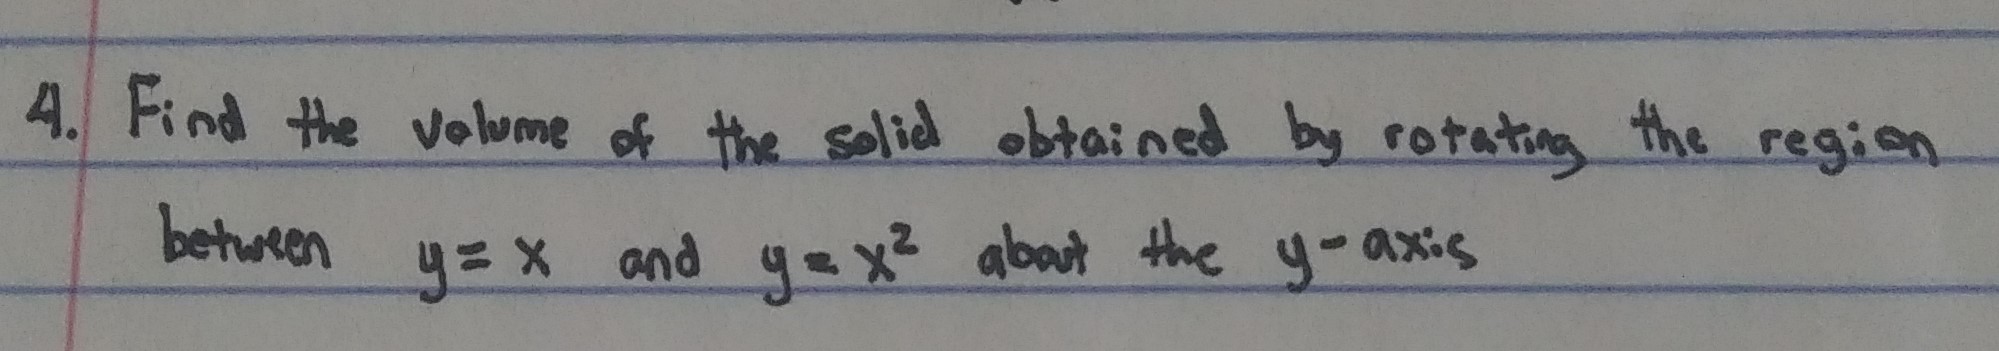 4. Find the volume of the solid obtained by rotating the region
between y = x and y = x² about the y-axis